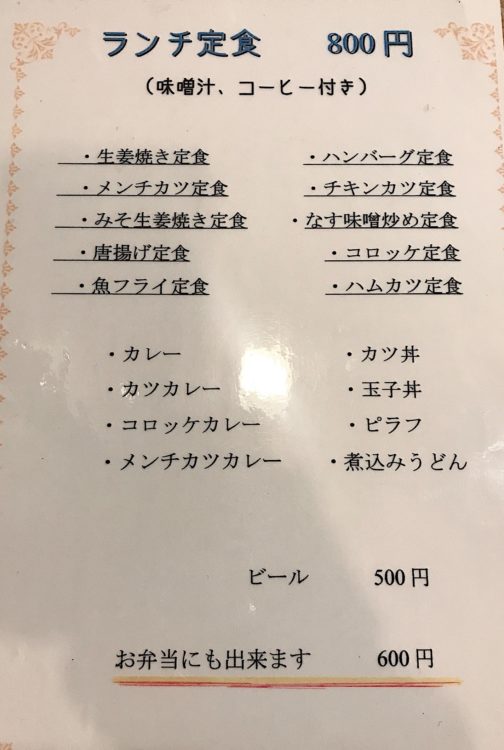 ランチ定食 800円
(味噌汁、コーヒー付き)
・生姜焼き定食 ・ハンバーグ定食
・メンチカツ定食 ・チキンカツ定食
・みそ生姜焼き定食 ・なす味噌炒め定食
・唐揚げ定食 ・コロッケ定食
・魚フライ定食 ・ハムカツ定食
・カレー ・カツ丼
・カツカレー ・玉子丼
・コロッケカレー ・ピラフ
・メンチカツカレー ・煮込みうどん
ビール 500円
お弁当にも出来ます 600円